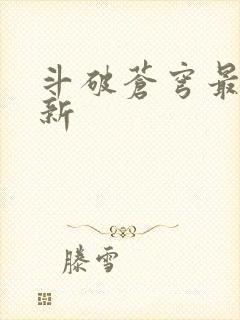 斗破蒼穹最
新
滕雪